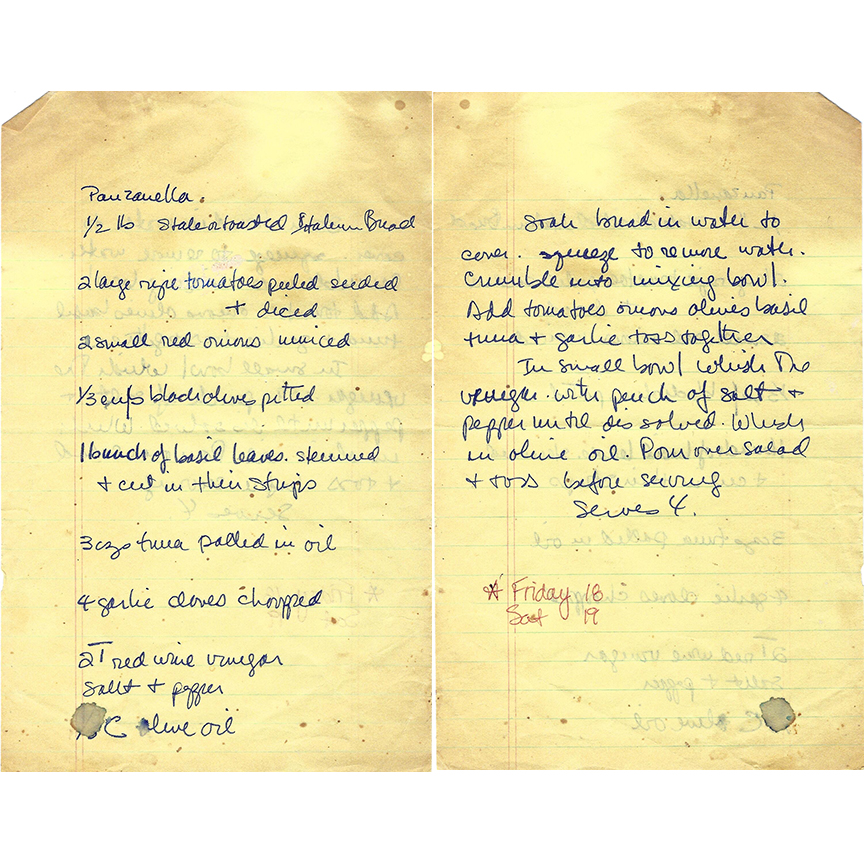 Panzanella.
1/2 lb stale or toasted Italian Bread
2 large ripe tomatoes peeled seeded
+ diced
2 small red onions minced
1/3 cups black olives pitted
1 bunch of basil leaves. stemmed
+ cut in thin strips
3 ozs tuna packed in oil
4 garlic cloves chopped
2 T red wine vinegar
Salt + pepper
C olive oil
Soak bread in water to
cover. squeeze to remove water.
Crumble into mixing bowl.
Add tomatoes onions olives basil
tuna + garlic toss together
In small bowl whisk the
vinegar with pinch of salt +
pepper until dissolved. Whisk
in olive oil. Pour over salad
+ toss before serving
Serves 4.
* Friday 18
Sat 19